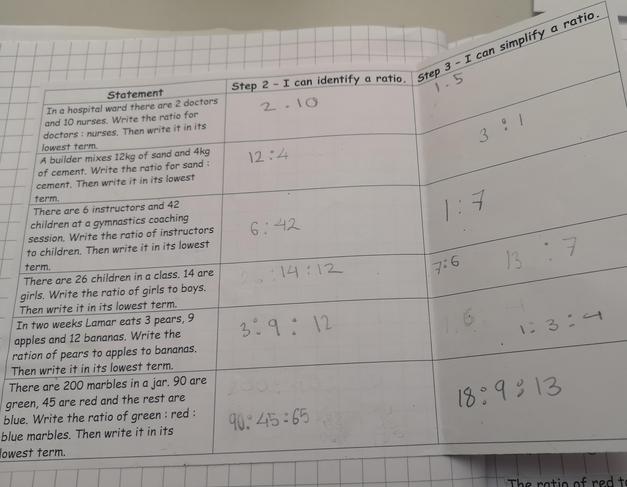 Statement
Step 2 - I can identify a ratio.
Step 3 - I can simplify a ratio.
In a hospital ward there are 2 doctors
and 10 nurses. Write the ratio for
doctors : nurses. Then write it in its
lowest term.
2 . 10
1 . 5
A builder mixes 12kg of sand and 4kg
of cement. Write the ratio for sand :
cement. Then write it in its lowest
term.
12 : 4
3 : 1
There are 6 instructors and 42
children at a gymnastics coaching
session. Write the ratio of instructors
to children. Then write it in its lowest
term.
6 : 42
1 : 7
There are 26 children in a class. 14 are
girls. Write the ratio of girls to boys.
Then write it in its lowest term.
: 14 : 12
7:6
13 : 7
In two weeks Lamar eats 3 pears, 9
apples and 12 bananas. Write the
ration of pears to apples to bananas.
Then write it in its lowest term.
3 : 9 : 12
1 : 3 : 4
There are 200 marbles in a jar. 90 are
green, 45 are red and the rest are
blue. Write the ratio of green : red :
blue marbles. Then write it in its
lowest term.
90 : 45 : 65
18 : 9 : 13
The ratio of red t